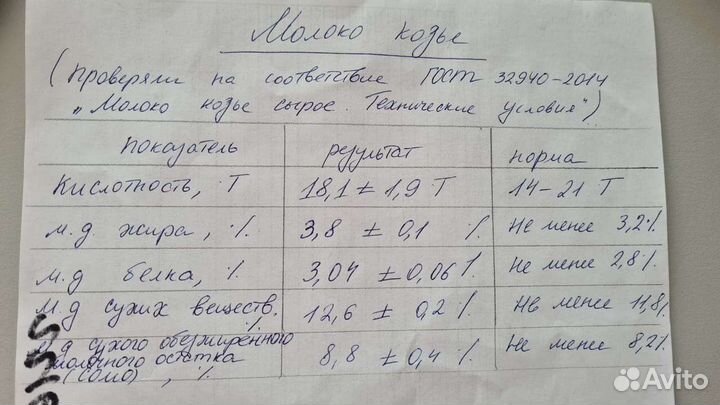 Молоко козье
(проверяли на соответствие ГОСТ 32940-2014
„Молоко козье сырое. Технические условия")
показатель результат норма
Кислотность, Т 18,1 ± 1,9 Т 14-21 Т
м.д жира, % 3,8 ± 0,1 % Не менее 3,2%
м.д белка, % 3,04 ± 0,06 % Не менее 2,8%
м.д сухих веществ. % 12,6 ± 0,2 % Не менее 11,8%
м.д сухого обезжиренного
молочного остатка 8,8 ± 0,4 % Не менее 8,2%
(СОМО), %
Avito